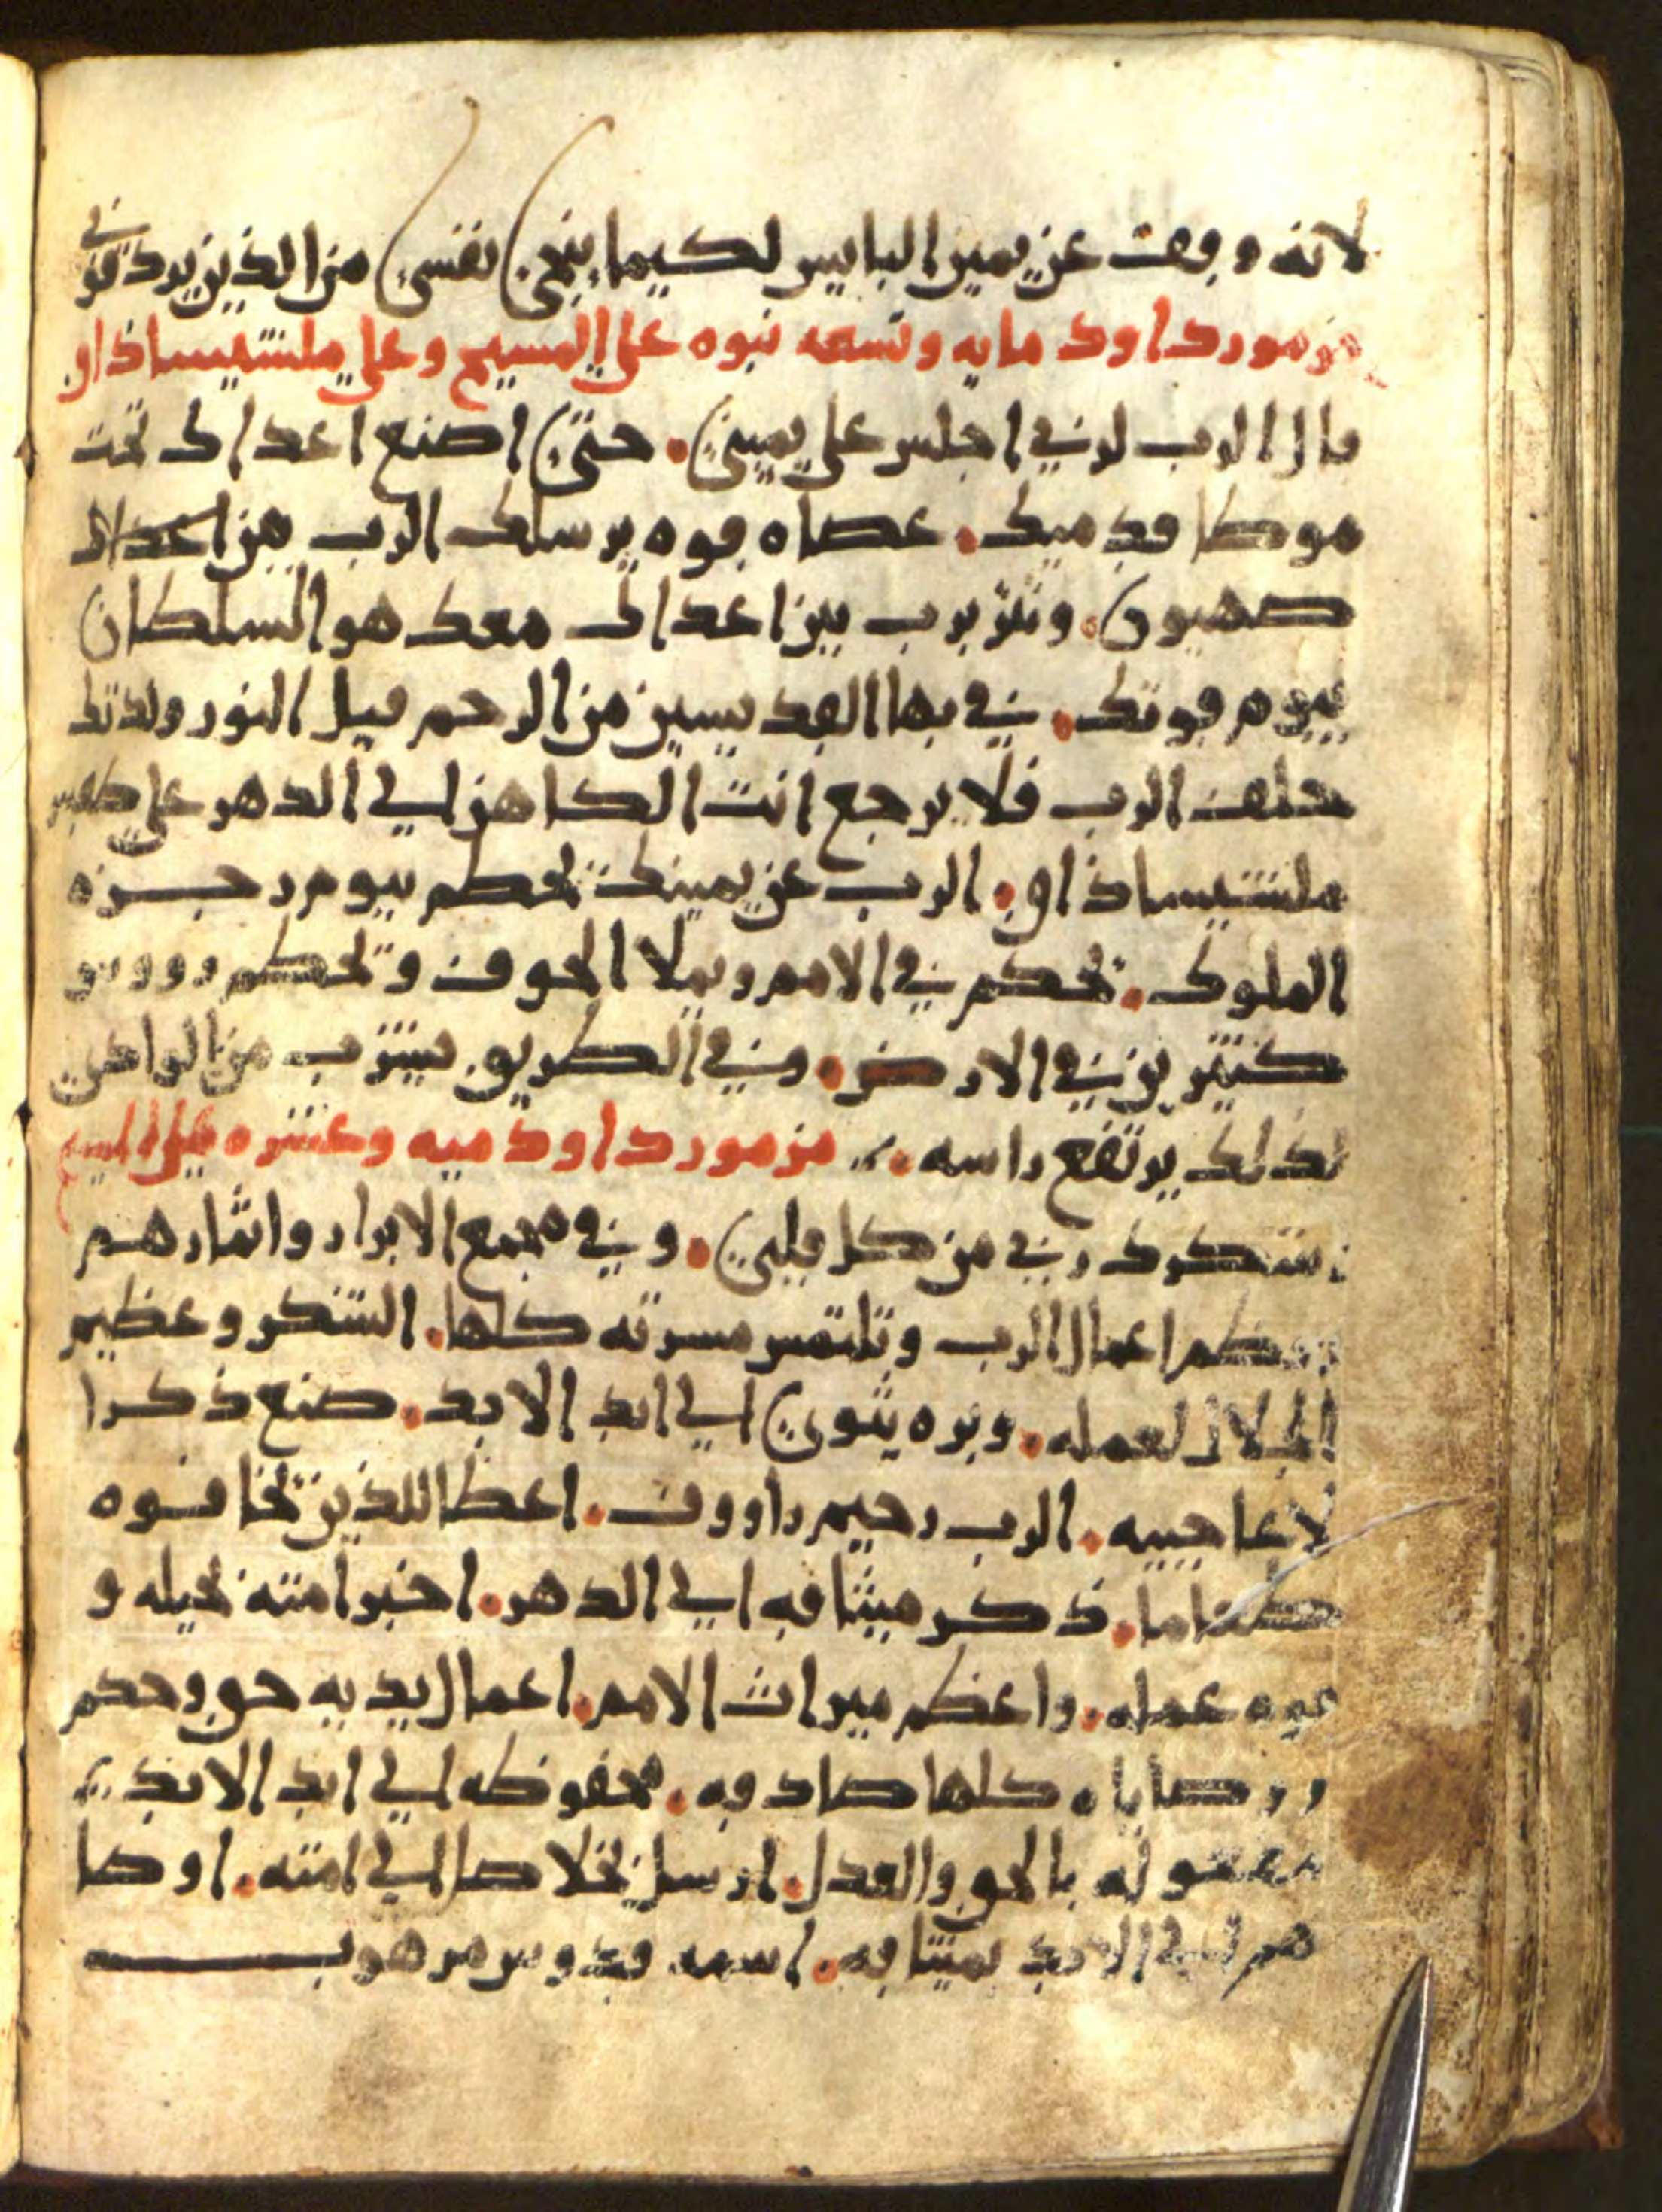 لانه وقف عن يمين البايس لكيما ينجي نفسي من الذين يردفوني
مزمور داود مايه وتسعه نبوه على المسيح وعلى ملشيساذاق
قال الرب لربي اجلس على يميني. حتى اصنع اعداك تحت
موطا قدميك. عصاه قوه يرسلك الرب من
صهيون. وتثرب بين اعداك معك هو السلطان
بيوم قوتك. في بها القديسين من الرحم قبل النور ولدتك
حلف الرب فلا يرجع انت الكاهن الي الدهر على طقس
ملشيساذاق. الرب عن يمينك تحطم بيوم رجزه
الملوك. تحكم في الامم ويملا الجوف وتحطم رووس
كثيرين في الارض. وفي الطريق يشرب من الوادي
لذلك يرتفع راسه. مزمور داود ميه وعشره على المسيح
نشكرك ربي من كل قلبي. وفي مجمع الابرار واثارهم
اعمال الرب وتلتمس مسرته كلها. الشكر وعظيم
الجلال لعمله. وبره يثوي الي ابد الابد. صنع ذكرا
لاعاجيبه. الرب رحيم راووف. اعطا للذين تخافوه
طعاما. ذكر ميثاقه الي الدهر. اخبر امته نحيله و
قوه عمله. واعطم ميراث الامم. اعمال يديه حق وحكم
ووصاياه كلها صادقه. محفوظه الي ابد الابد
معموله بالحق والعدل. ارسل خلاصا الي امته. اوصا
هم الي الابد بميثاقه. اسمه قدوس مرهوب